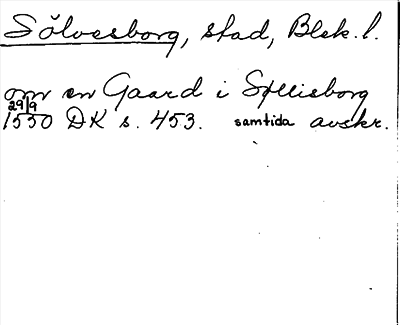 Sölvesborg, stad, Blek. l.
om en Gaard i Sÿllisborg
29/9
1550 DK s. 453. samtida avskr.